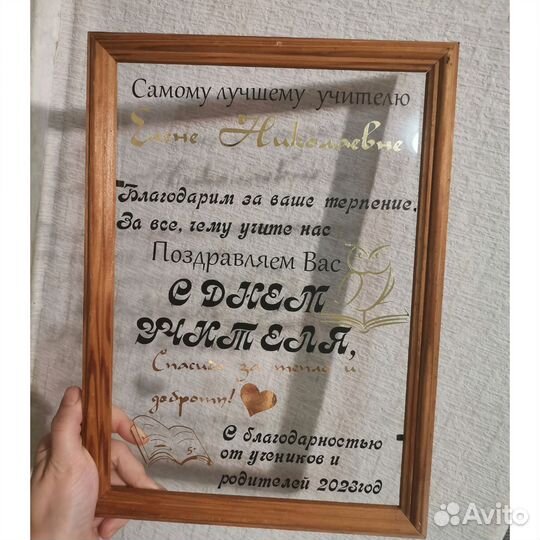 Самому лучшему учителю
Елене Николаевне
Благодарим за ваше терпение,
За все, чему учите нас
Поздравляем Вас
С ДНЕМ
УЧИТЕЛЯ,
Спасибо за тепло и
доброту!
5+
С благодарностью
от учеников и
родителей 2023год
Avito